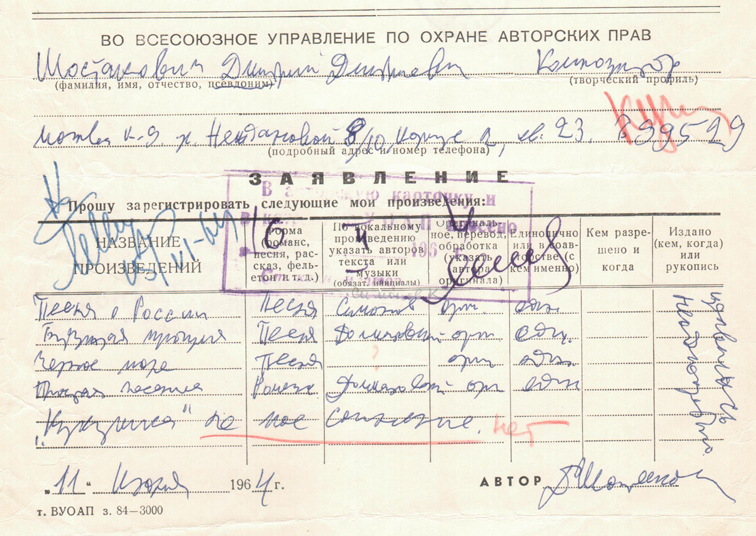 ВО ВСЕСОЮЗНОЕ УПРАВЛЕНИЕ ПО ОХРАНЕ АВТОРСКИХ ПРАВ
Шостакович Дмитрий Дмитриевич Композитор
(фамилия, имя, отчество, псевдоним) (творческий профиль)
Москва К-9. ул. Неждановой 8/10, корпус 2, кв. 23. 299529
(подробный адрес и номер телефона)
ЗАЯВЛЕНИЕ
Прошу зарегистрировать следующие мои произведения:
НАЗВАНИЕ ПРОИЗВЕДЕНИЙ
Форма (романс, песня, рассказ, фельетон и т.д.)
По вокальному произведению указать автора текста или музыки (обязат. инициалы)
Оригинальное, перевод, обработка (указать автора оригинала)
Единолично или в соавторстве (с кем именно)
Кем разрешено и когда
Издано (кем, когда) или рукопись
Песня о России Песня ориг. един.
Песня Долматовский ориг един.
Черное море Песня ориг. един.
Долматовский ориг един
„Кукушка" не мое сочинение. нет
издавались неоднократно
„11" 1964 г. АВТОР ДШостакович
т. ВУОАП з. 84—3000